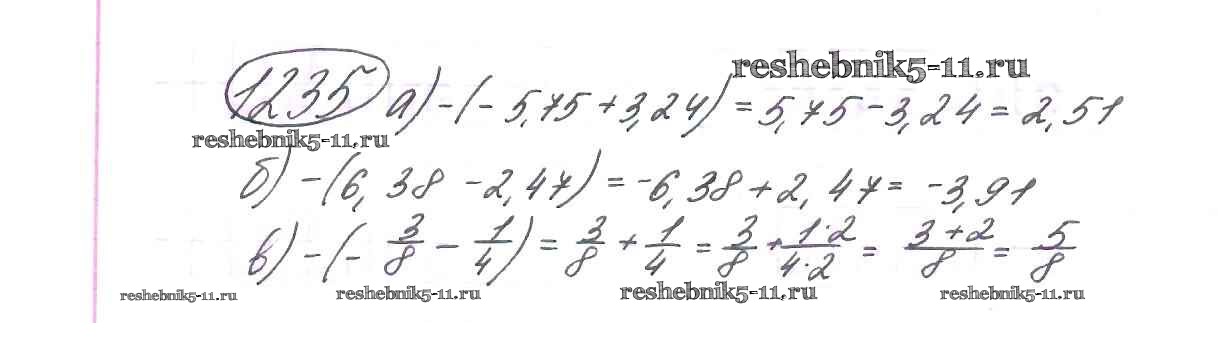 reshebnik5-11.ru
1235 а) -(-5,75+3,24) = 5,75-3,24 = 2,51
reshebnik5-11.ru
б) -(6,38-2,47) = -6,38+2,47 = -3,91
в) -(-3/8 - 1/4) = 3/8 + 1/4 = 3/8 + 1·2/4·2 = 3+2/8 = 5/8
reshebnik5-11.ru reshebnik5-11.ru reshebnik5-11.ru reshebnik5-11.ru